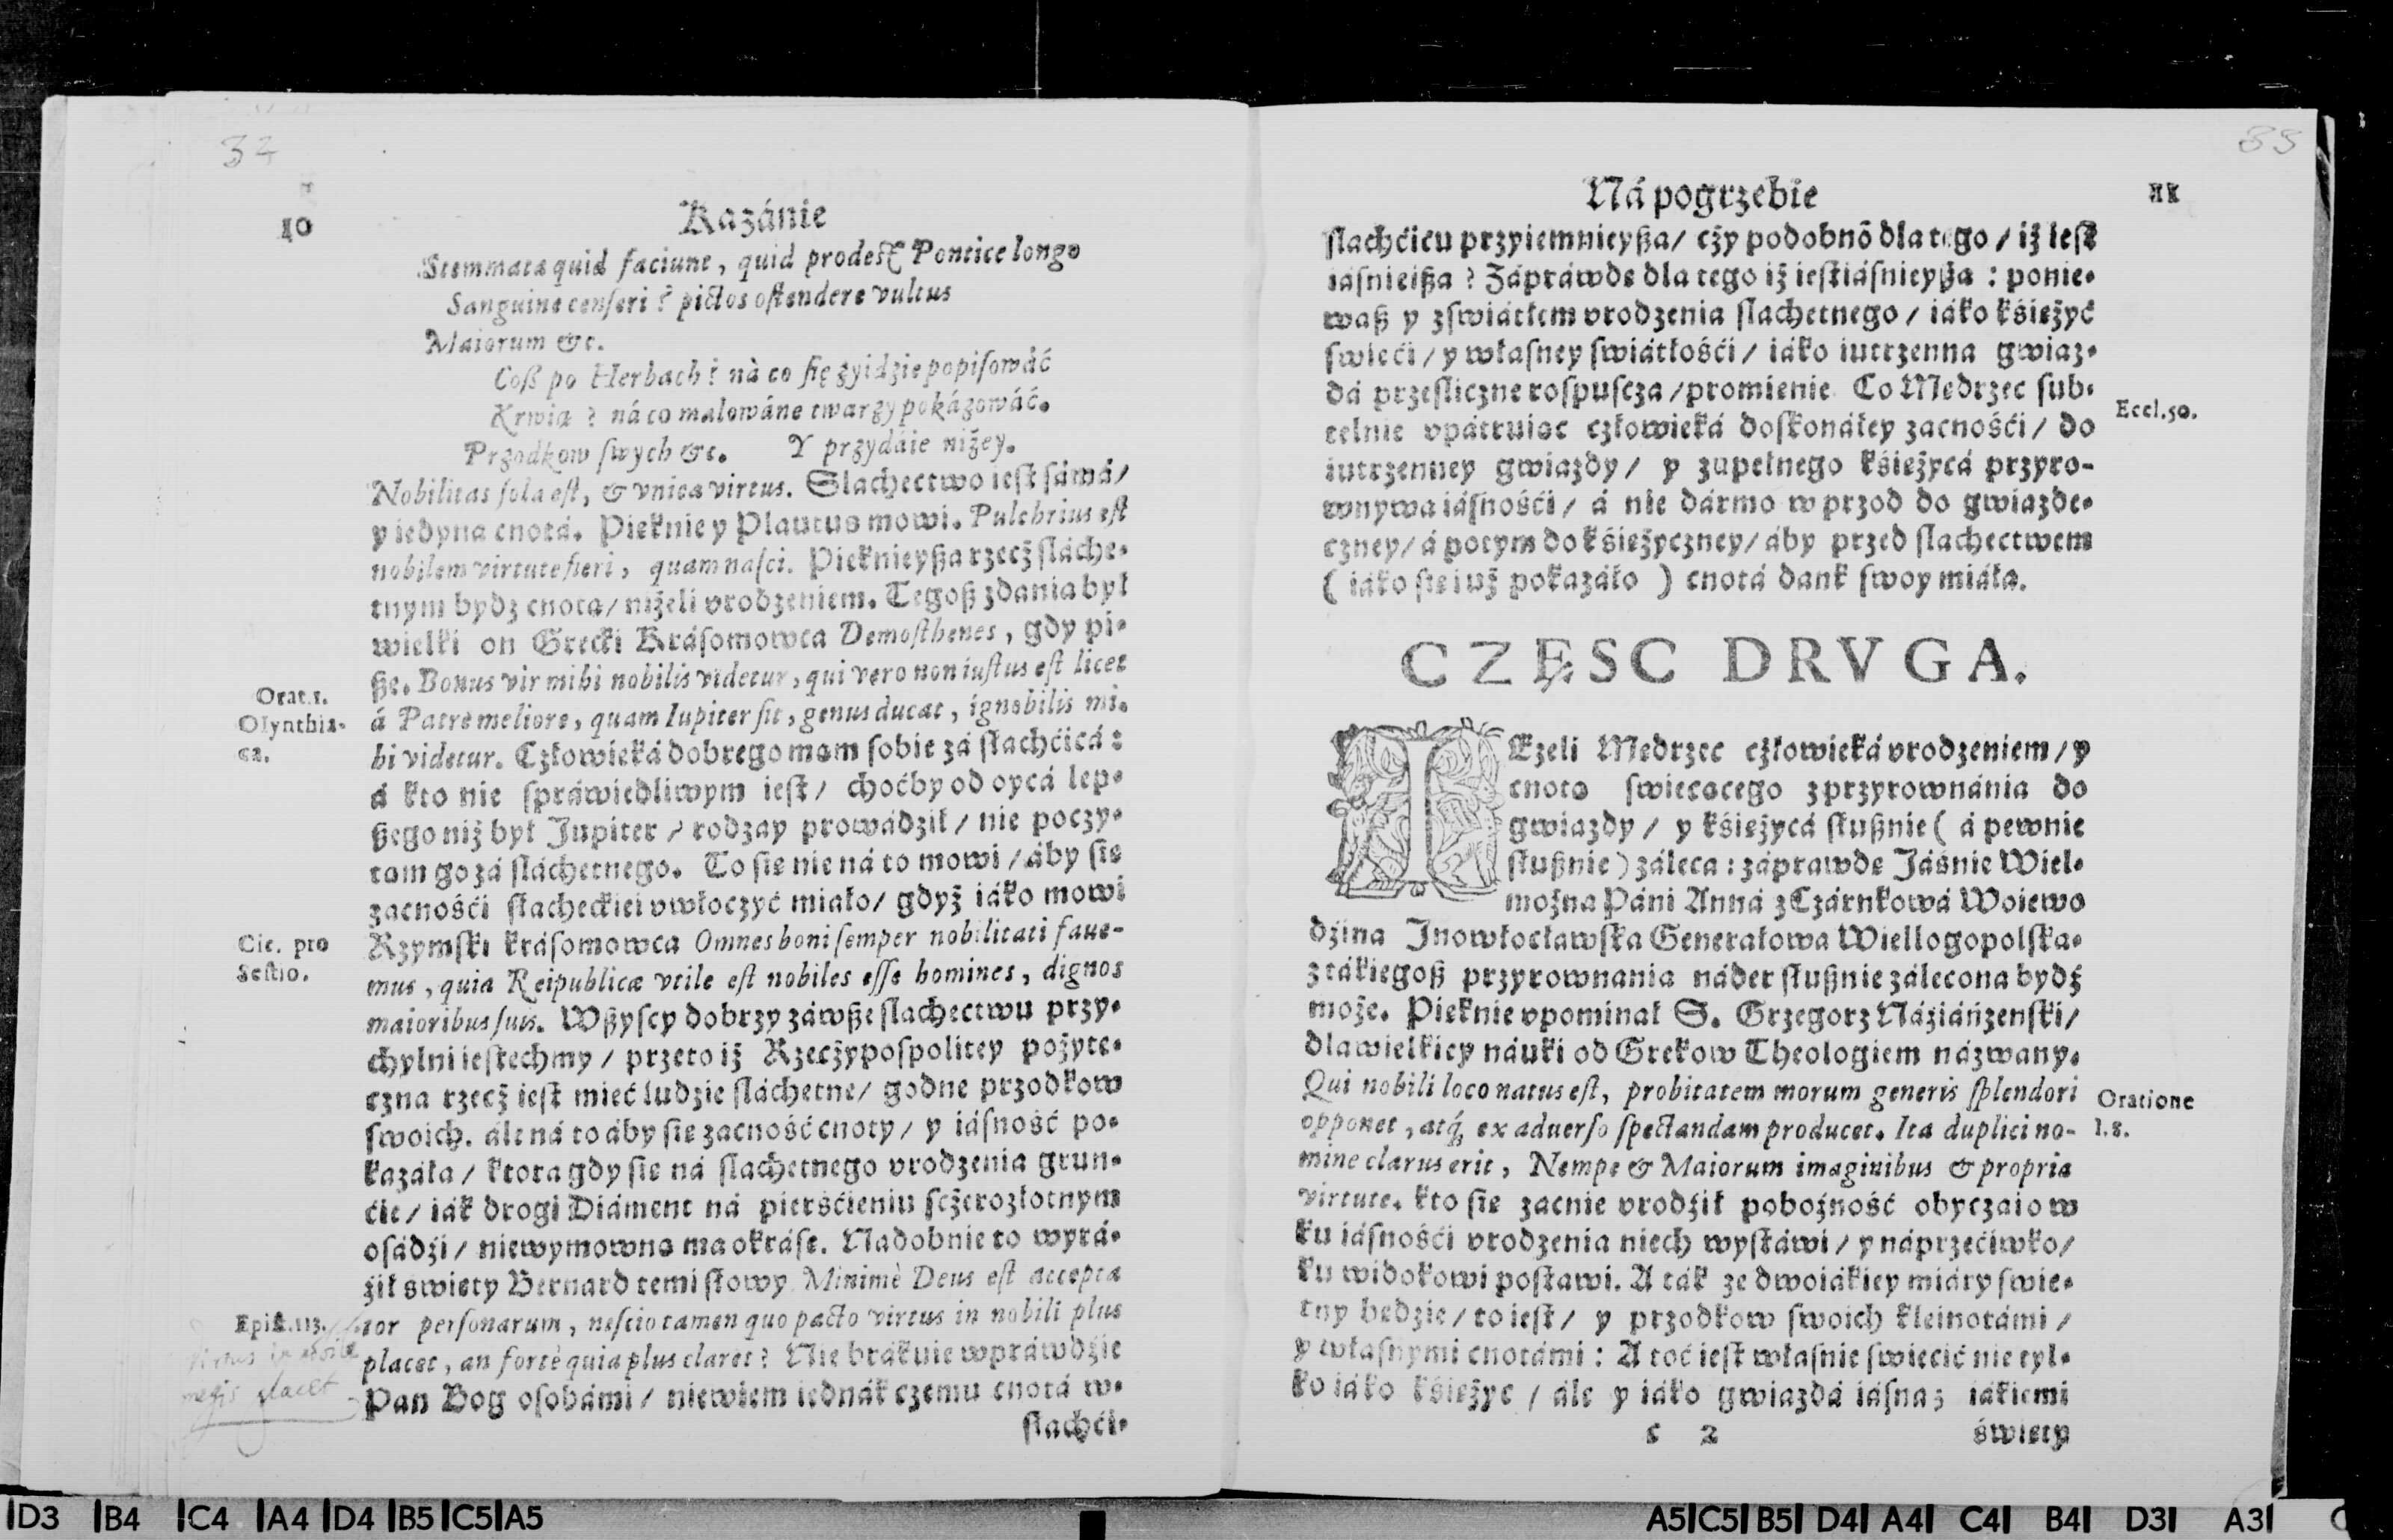 34
10
Kazánie
Stemmata quid faciunt, quid prodest Pontice longo
Sanguine censeri? pictos ostendere vultus
Maiorum &c.
Coß po Herbach? nà co się zyidzie popisowáć
Krwią? ná co malowáne twarzy pokázowáć.
Przodkow swych &c. Y przydáie niżey.
Nobilitas sola est, & vnica virtus. Slachectwo iest sámá/
y iedyna cnotá. Pieknie y Plautus mowi. Pulchrius est
nobilem virtute fieri, quam nasci. Pieknieyßa rzecż sláche-
tnym bydz cnota/ niżeli vrodzeniem. Tegoß zdania był
wielki on Grecki Krásomowca Demosthenes, gdy pi-
ße. Bonus vir mihi nobilis videtur, qui vero non iustus est licet
á Patre meliore, quam Iupiter sit, genus ducat, ignobilis mi-
hi videtur. Człowieká dobrego mam sobie zá slachćicá:
á kto nie spráwiedliwym iest/ choćby od oycá lep-
ßego niż był Jupiter/ rodzay prowádził/ nie poczy-
tam go zá sláchetnego. To sie nie ná to mowi/ áby sie
zacnośći slacheckiei vwłoczyć miało/ gdyż iáko mowi
Rzymski krásomowca Omnes boni semper nobilitati faue-
mus, quia Reipublicæ vtile est nobiles esse homines, dignos
maioribus suis. Wßyscy dobrzy záwße slachectwu przy-
chylni iestechmy/ przeto iż Rzecżypospolitey pożyte-
czna rzecż iest mieć ludzie sláchetne/ godne przodkow
swoich. ále ná to áby sie zacność cnoty/ y iásność po-
kazáła/ ktora gdy sie ná slachetnego vrodzenia grun-
ćie/ iák drogi Diáment ná pierśćieniu scżerozłotnym
osádźi/ niewymowna ma okráse. Nadobnie to wyrá-
źił swiety Bernard temi słowy Minimè Deus est accepta
tor personarum, nescio tamen quo pacto virtus in nobili plus
placet, an fortè quia plus claret? Nie brákuie wpráwdźie
Pan Bog osobámi/ niewiem iednák czemu cnotá w-
slachći-
Orat.1.
Olynthia-
ca.
Cic. pro
Sestio.
Epist.113.
virtus in nobili
magis placet
35
Ná pogrzebie
11
slachćicu przyiemnieyßa/ cży podobnõ dla tego/ iż iest
iásnieißa? Záprawde dla tego iż iest iásnieyßa: ponie-
waß y zswiátłem vrodzenia slachetnego/ iáko kśieżyc
swieći/ y własney swiátłośći/ iáko iutrzenna gwiaz-
dá przesliczne rospuscza/ promienie. Co Medrzec sub-
telnie vpátruiac człowieká doskonáłey zacnośći/ do
iutrzenney gwiazdy/ y zupełnego kśieżycá przyro-
wnywa iásnośći/ á nie dármo w przod do gwiazde-
czney/ á potym do kśieżyczney/ áby przed slachectwem
( iáko sie iuż pokazáło ) cnotá dank swoy miáła.
Eccl.50.
CZĘSC DRVGA.
IEzeli Medrzec cżłowieká vrodzeniem/ y
cnota swiecacego z przyrownánia do
gwiazdy/ y kśieżycá słußnie ( á pewnie
słußnie ) záleca: záprawde Jáśnie Wiel-
można Páni Anná z Czárnkowá Woiewo
dźina Jnowłocławska Generałowa Wiellogopolska-
z tákiegoß przyrownania náder słußnie zálecona bydź
może. Pieknie vpominał S. Grzegorz Náźiáńzenski/
dla wielkiey náuki od Grekow Theologiem názwany.
Qui nobili loco natus est, probitatem morum generis splendori
opponet, atq́; ex aduerso spectandam producet. Ita duplici no-
mine clarus erit, Nempe & Maiorum imaginibus & propria
virtute. kto sie zacnie vrodźił pobożność obyczaiow
ku iásnośći vrodzenia niech wystáwi/ y náprzećiwko/
ku widokowi postawi. A ták ze dwoiákiey miáry swie-
tny bedzie/ to iest/ y przodkow swoich kleinotámi/
y własnymi cnotámi: A toć iest własnie swiecić nie tyl-
ko iáko kśieżyc/ ále y iáko gwiazdá iásna; iákiemi
Oratione
18.
c 2
świety
D3 B4 C4 A4 D4 B5 C5 A5
A5 C5 B5 D4 A4 C4 B4 D3 A3 C